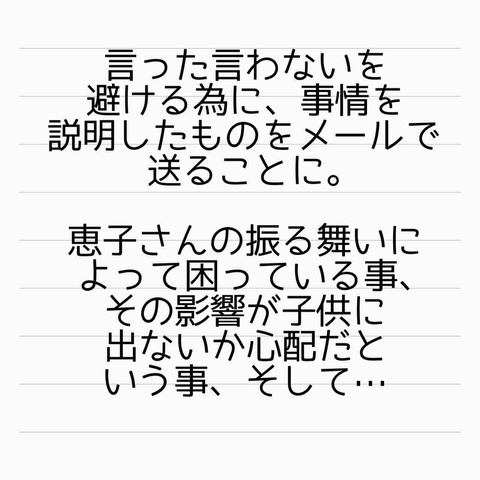 言った言わないを
避ける為に、事情を
説明したものをメールで
送ることに。
恵子さんの振る舞いに
よって困っている事、
その影響が子供に
出ないか心配だと
いう事、そして…